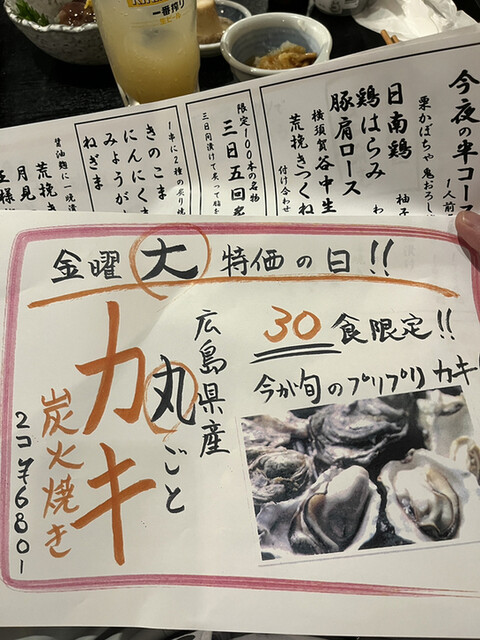 一番搾り
生ビール
今夜の半コース
1人前
栗かぼちゃ 鬼おろし
柚子
日南鶏
鶏はらみ
豚肩ロース
横須賀谷中生
荒挽きつくね
付け合わせ
限定100本の名物
三日五回
1串に2種の
きのこま
にんにく
みょうが
ねぎま
醤油麹に一晩漬
荒挽
月見
金曜 大 特価の日!!
30食限定!!
今が旬のプリプリ カキ
広島県産
丸ごと
カキ
炭火焼き
2コ¥680-